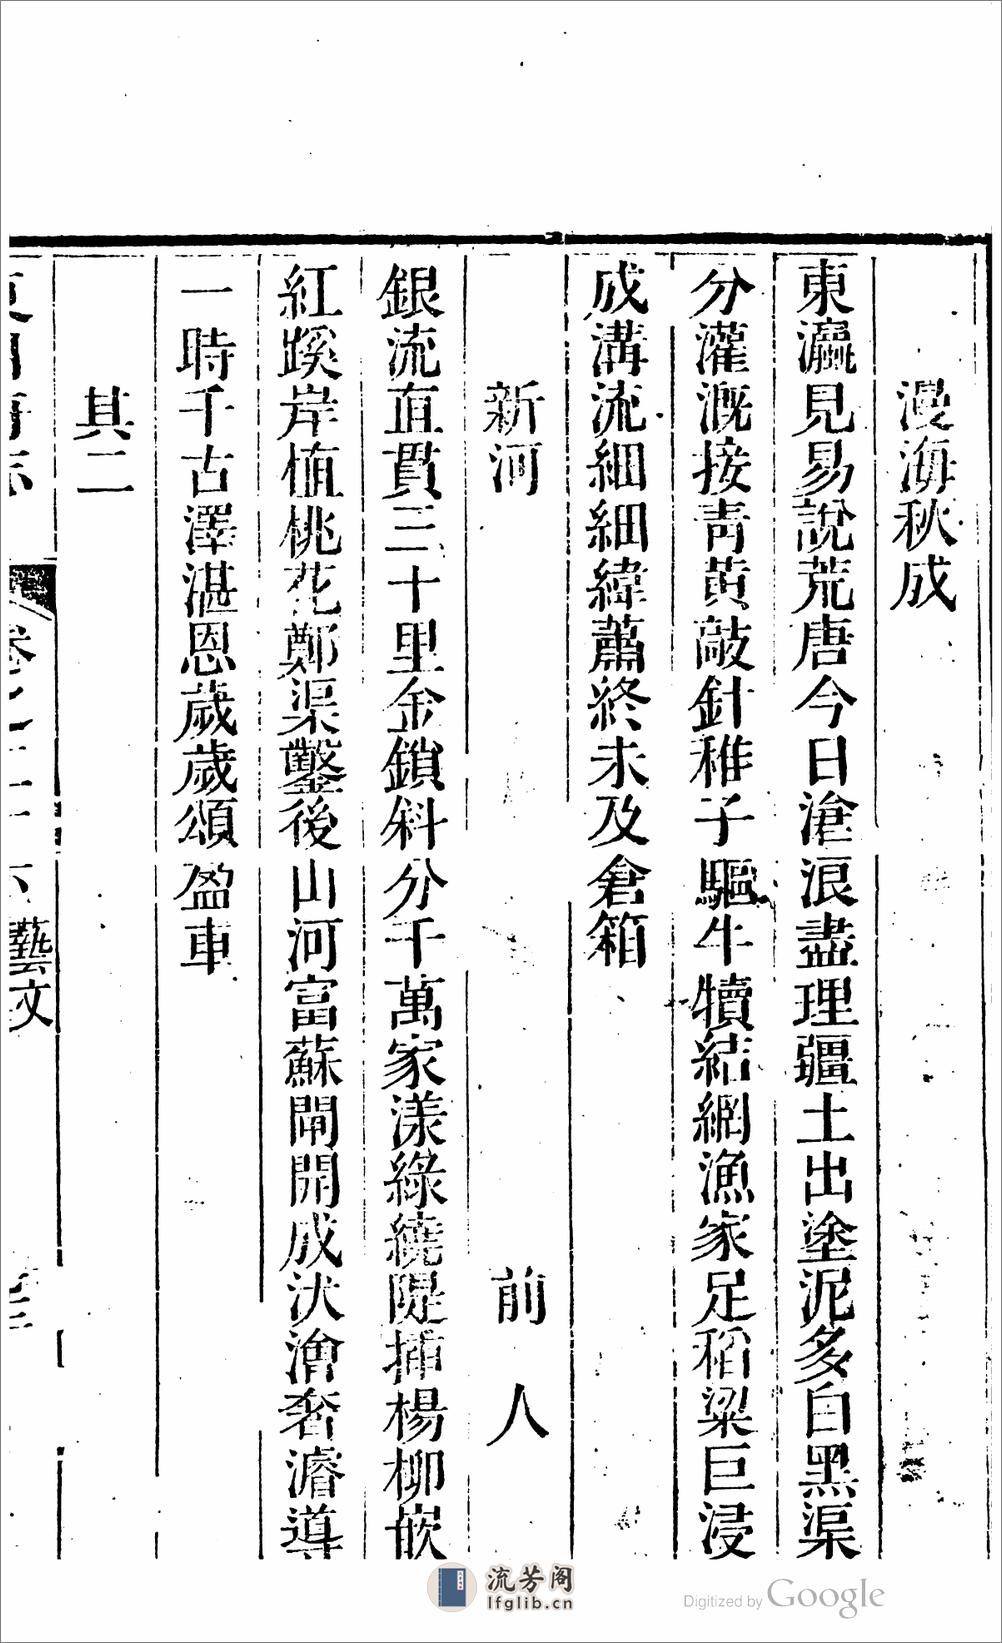 漫海秋成
東瀛見易說荒唐今日滄浪盡理疆土出塗泥多白黑渠
分灌溉接青黃敲針稚子驅牛犢結網漁家足稻粱巨浸
成溝流細細緯蕭終未及倉箱
新河 前人
銀流直貫三十里金鎖斜分千萬家漾綠繞隄插楊柳嵌
紅蹊岸植桃花鄭渠鑿後山河富蘇閘開成洑澮奢濬導
一時千古澤湛恩歲歲頌盈車
其二
卷之二十六藝文
流芳阁
lfglib.cn
Digitized by Google